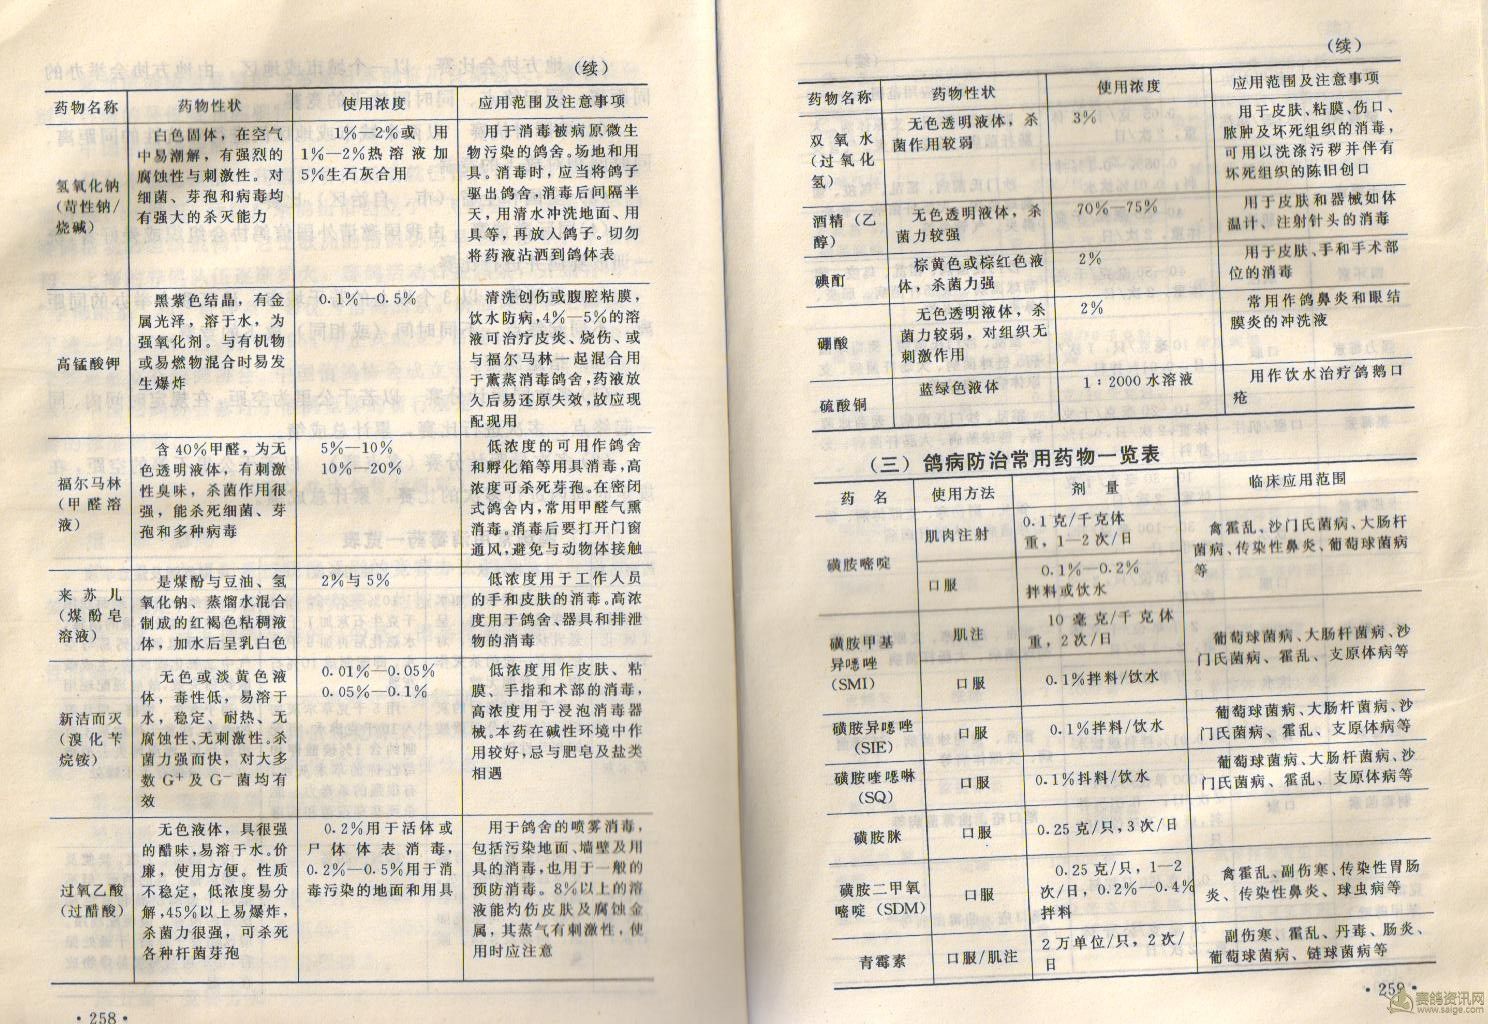 (续)
药物名称 药物性状 使用浓度 应用范围及注意事项
氢氧化钠
(苛性钠/
烧碱)
白色固体，在空气
中易潮解，有强烈的
腐蚀性与刺激性。对
细菌、芽孢和病毒均
有强大的杀灭能力
1%—2%或用
1%—2%热溶液加
5%生石灰合用
用于消毒被病原微生
物污染的鸽舍。场地和用
具。消毒时，应当将鸽子
驱出鸽舍，消毒后间隔半
天，用清水冲洗地面、用
具等，再放入鸽子。切勿
将药液沾洒到鸽体表
高锰酸钾
黑紫色结晶，有金
属光泽，溶于水，为
强氧化剂。与有机物
或易燃物混合时易发
生爆炸
0.1%—0.5%
清洗创伤或腹腔粘膜，
饮水防病，4%—5%的溶
液可治疗皮炎、烧伤、或
与福尔马林一起混合用
于薰蒸消毒鸽舍，药液放
久后易还原失效，故应现
配现用
福尔马林
(甲醛溶
液)
含40%甲醛，为无
色透明液体，有刺激
性臭味，杀菌作用很
强，能杀死细菌、芽
孢和多种病毒
5%—10%
10%—20%
低浓度的可用作鸽舍
和孵化箱等用具消毒，高
浓度可杀死芽孢。在密闭
式鸽舍内，常用甲醛气熏
消毒。消毒后要打开门窗
通风，避免与动物体接触
来苏儿
(煤酚皂
溶液)
是煤酚与豆油、氢
氧化钠、蒸馏水混合
制成的红褐色粘稠液
体，加水后呈乳白色
2%与5%
低浓度用于工作人员
的手和皮肤的消毒。高浓
度用于鸽舍、器具和排泄
物的消毒
新洁而灭
(溴化苄
烷铵)
无色或淡黄色液
体，毒性低，易溶于
水，稳定、耐热、无
腐蚀性、无刺激性。杀
菌力强而快，对大多
数G+及G-菌均有
效
0.01%—0.05%
0.05%—0.1%
低浓度用作皮肤、粘
膜、手指和术部的消毒，
高浓度用于浸泡消毒器
械。本药在碱性环境中作
用较好，忌与肥皂及盐类
相遇
过氧乙酸
(过醋酸)
无色液体，具很强
的醋味，易溶于水。价
廉，使用方便。性质
不稳定，低浓度易分
解，45%以上易爆炸，
杀菌力很强，可杀死
各种杆菌芽孢
0.2%用于活体或
尸体体表消毒，
0.2%—0.5%用于消
毒污染的地面和用具
用于鸽舍的喷雾消毒，
包括污染地面、墙壁及用
具的消毒，也用于一般的
预防消毒。8%以上的溶
液能灼伤皮肤及腐蚀金
属，其蒸气有刺激性，使
用时应注意
·258·
(续)
药物名称 药物性状 使用浓度 应用范围及注意事项
双氧水
(过氧化
氢)
无色透明液体，杀
菌作用较弱
3%
用于皮肤、粘膜、伤口、
脓肿及坏死组织的消毒，
可用以洗涤污秽并伴有
坏死组织的陈旧创口
酒精(乙
醇)
无色透明液体，杀
菌力较强
70%—75%
用于皮肤和器械如体
温计、注射针头的消毒
碘酊
棕黄色或棕红色液
体，杀菌力强
2%
用于皮肤、手和手术部
位的消毒
硼酸
无色透明液体，杀
菌力较弱，对组织无
刺激作用
2%
常用作鸽鼻炎和眼结
膜炎的冲洗液
硫酸铜
蓝绿色液体
1：2000水溶液
用作饮水治疗鸽鹅口
疮
(三) 鸽病防治常用药物一览表
药名 使用方法 剂量 临床应用范围
磺胺嘧啶
肌肉注射
0.1克/千克体
重，1—2次/日
口服
0.1%—0.2%
拌料或饮水
禽霍乱、沙门氏菌病、大肠杆
菌病、传染性鼻炎、葡萄球菌病
等
磺胺甲基
异噁唑
(SMI)
肌注
10毫克/千克体
重，2次/日
口服
0.1%拌料/饮水
葡萄球菌病、大肠杆菌病、沙
门氏菌病、霍乱、支原体病等
磺胺异噁唑
(SIE)
口服
0.1%拌料/饮水
葡萄球菌病、大肠杆菌病、沙
门氏菌病、霍乱、支原体病等
磺胺喹噁啉
(SQ)
口服
0.1%抖料/饮水
葡萄球菌病、大肠杆菌病、沙
门氏菌病、霍乱、支原体病等
磺胺脒
口服
0.25克/只，3次/日
磺胺二甲氧
嘧啶(SDM)
口服
0.25克/只，1—2
次/日，0.2%—0.4%
拌料
禽霍乱、副伤寒、传染性胃肠
炎、传染性鼻炎、球虫病等
青霉素
口服/肌注
2万单位/只，2次/
日
副伤寒、霍乱、丹毒、肠炎、
葡萄球菌病、链球菌病等
·259·
赛鸽资讯网
www.saige.com